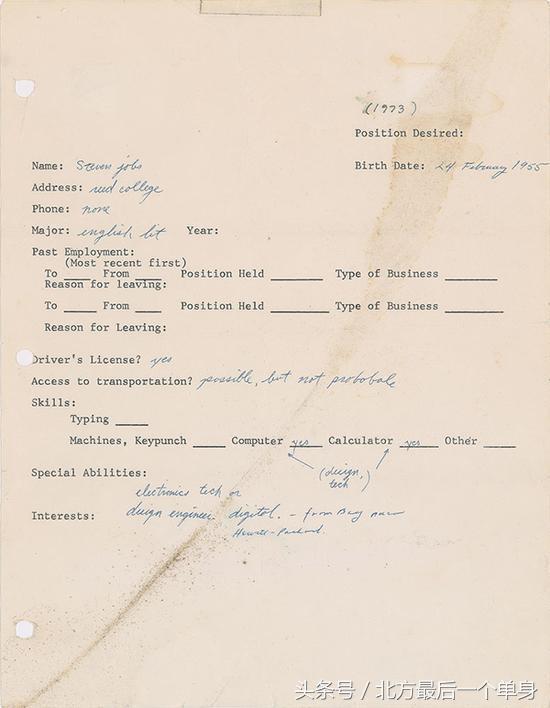 (1973)
Position Desired:
Name: Steven jobs Birth Date: 24 February 1955
Address: reed college
Phone: none
Major: english lit Year:
Past Employment:
(Most recent first)
To ____ From ____ Position Held ________ Type of Business ________
Reason for leaving:
To ____ From ____ Position Held ________ Type of Business ________
Reason for Leaving:
Driver's License? yes
Access to transportation? possible, but not probobale
Skills:
Typing _____
Machines, Keypunch _____ Computer yes Calculator yes Other _____
(design,
tech)
Special Abilities:
electronics tech or
Interests: design engineer. digital. - from Bay near
Hewitt-Packard.
头条号 / 北方最后一个单身